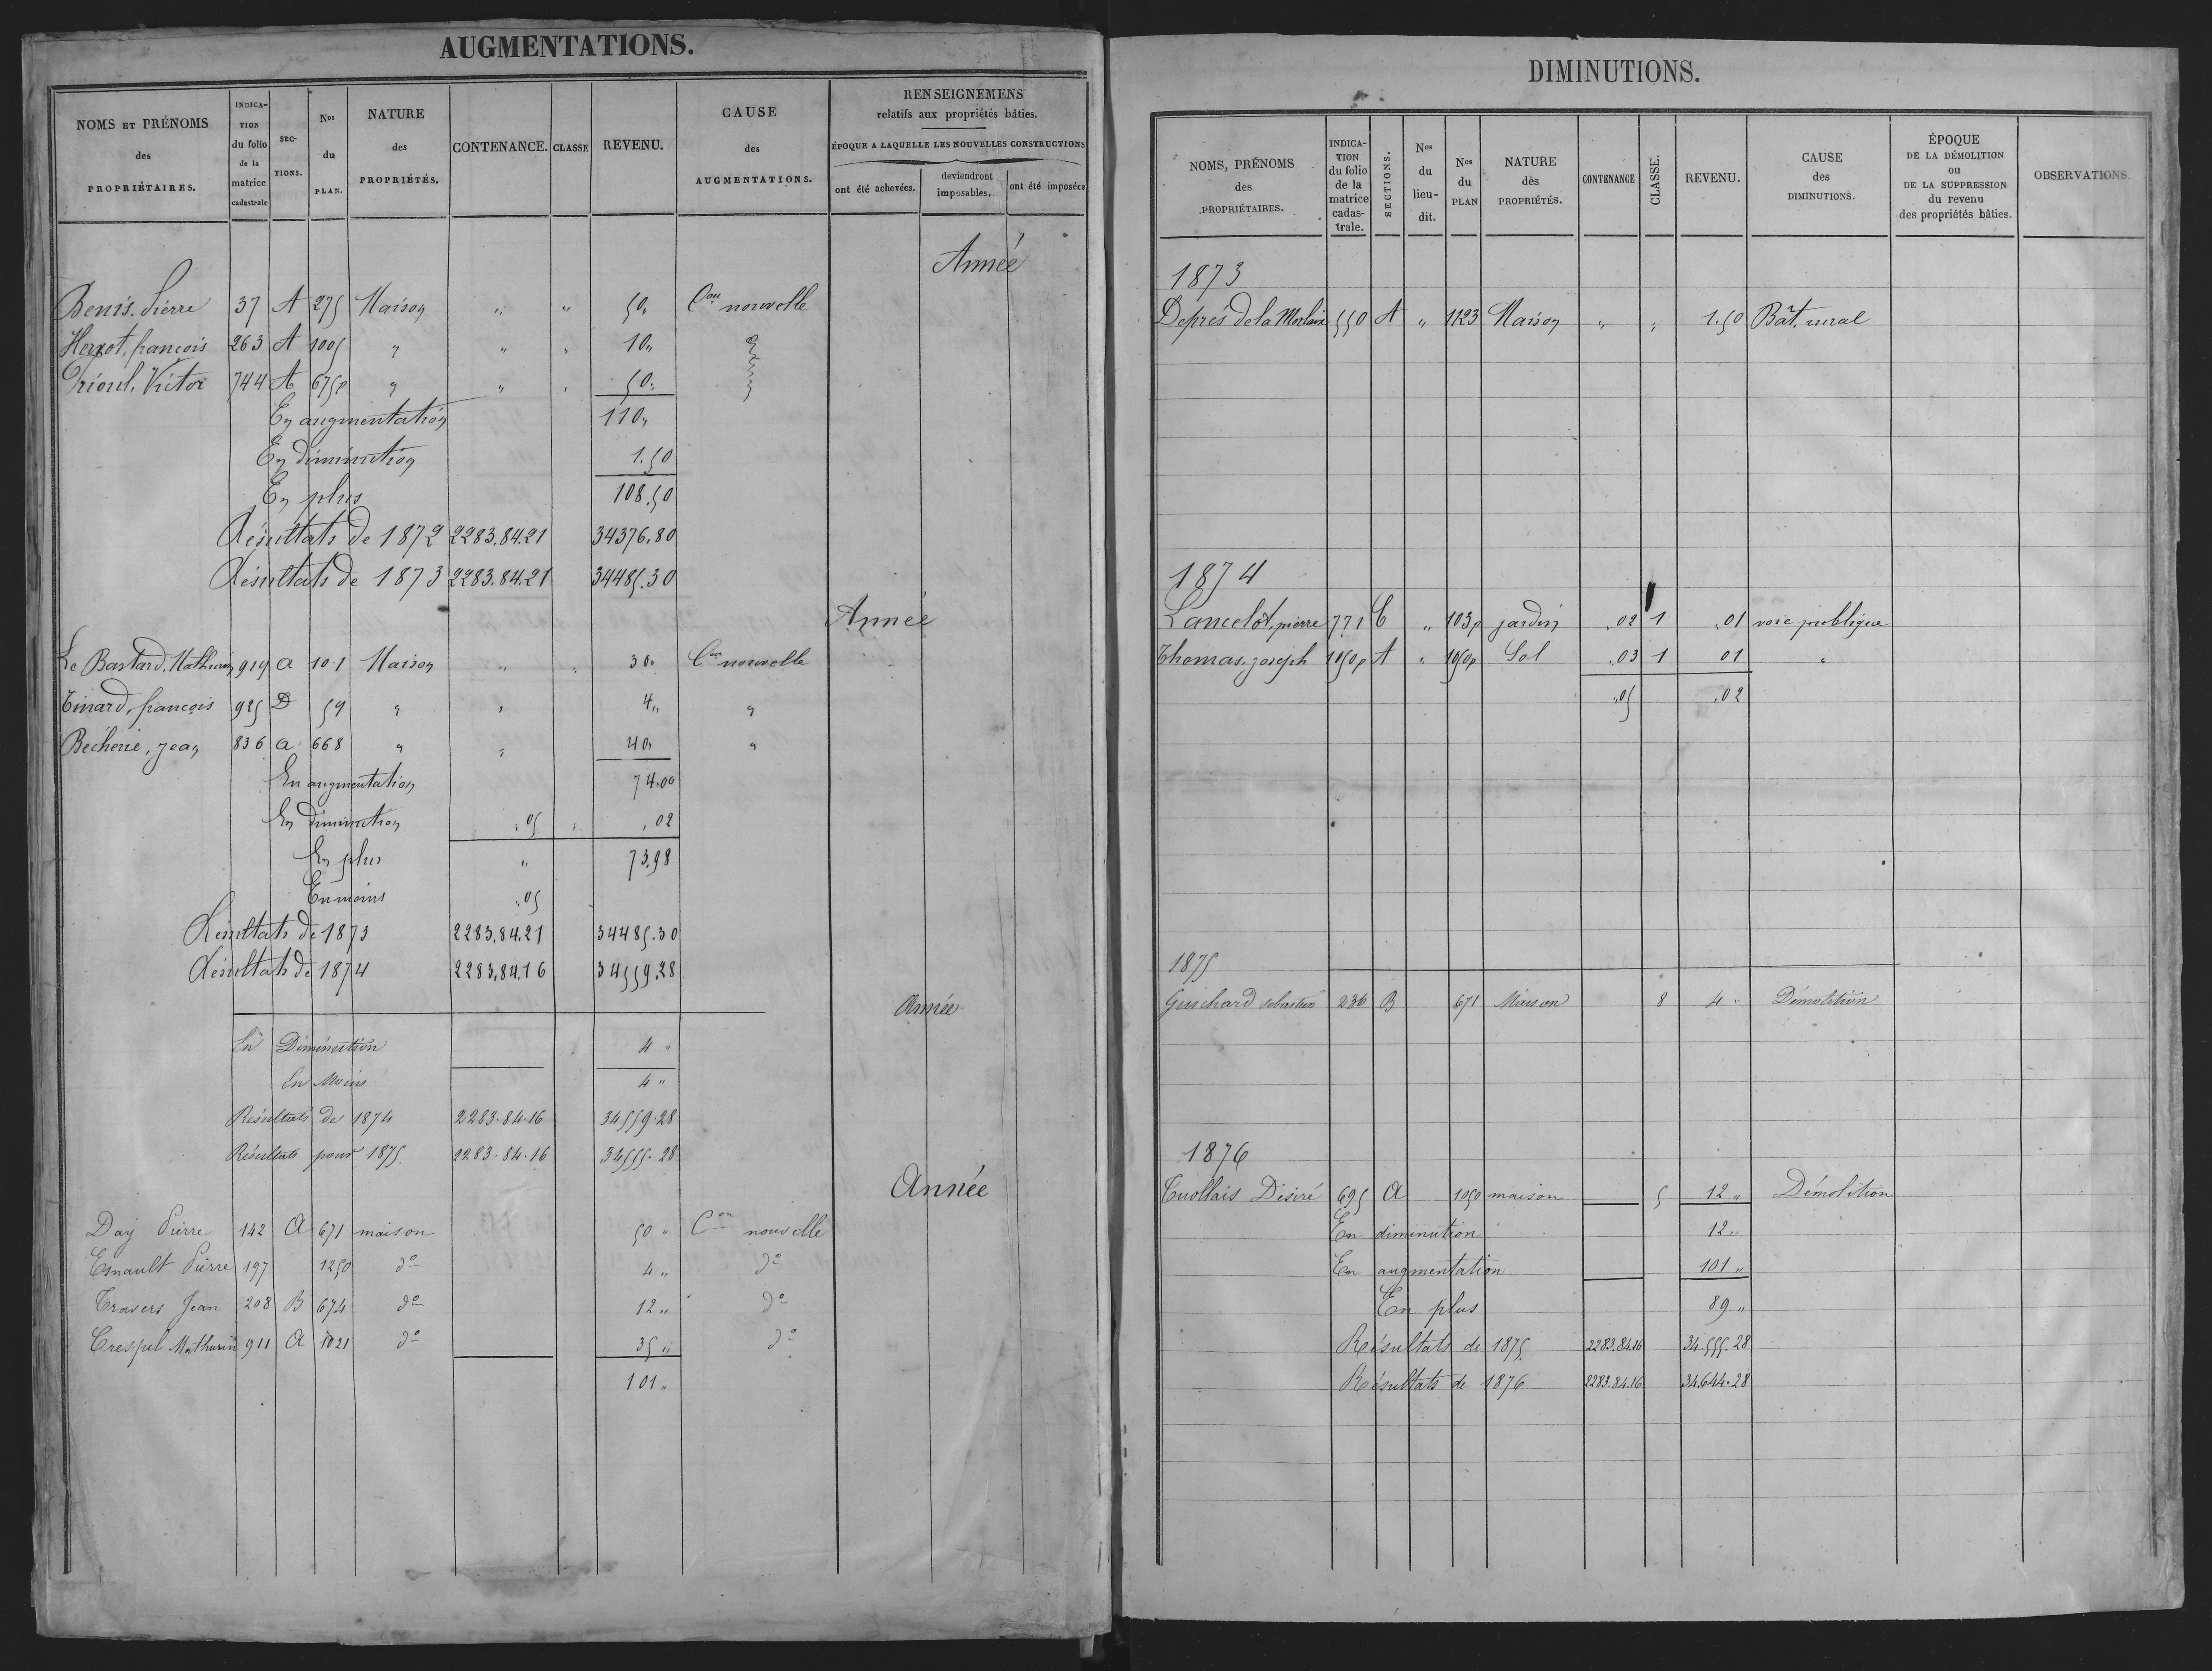 AUGMENTATIONS.
NOMS ET PRÉNOMS des PROPRIÉTAIRES. INDICA-TION du folio de la matrice cadastrale SEC-TIONS. Nos du PLAN. NATURE des PROPRIÉTÉS. CONTENANCE. CLASSE REVENU. CAUSE des AUGMENTATIONS. RENSEIGNEMENS relatifs aux propriétés bâties. ÉPOQUE A LAQUELLE LES NOUVELLES CONSTRUCTIONS ont été achevées. deviendront imposables. ont été imposées
Année
Benis. Pierre 37 A 275 Maison " " 50. Con nouvelle
Herxot, françois 263 A 1005 " " " 10"
Trioul, Victor 744 A 675p " " " 50"
En augmentation 110"
En diminution 1.50
En plus 108.50
Résultats de 1872 2283.84.21 34376.80
Résultats de 1873 2283.84.21 34485.30
Année
Le Bastard, Mathurin 919 a 101 Maison " " 30" Con nouvelle
Tinard, françois 925 D 59 " " 4" "
Becherie, jean 836 a 668 " " 40" "
En augmentation 74.00
En diminution .05 " .02
En plus " 73.98
En moins .05
Résultats de 1873 2283.84.21 34485.30
Résultats de 1874 2283.84.16 34559.28
Année
En Diminution 4 "
En Moins 4 "
Résultats de 1874 2283.84.16 34559.28
Résultats pour 1875 2283.84.16 34555.28
Année
Day Pierre 142 A 671 maison 50 " Con nouvelle
Esnault Pierre 197 1250 do 4 " do
Travers Jean 208 B 674 do 12 " do
Crespel Mathurin 911 A 1021 do 35 " do
101 "
DIMINUTIONS.
NOMS, PRÉNOMS des PROPRIÉTAIRES. INDICA-TION du folio de la matrice cadas-trale. SECTIONS. Nos du lieu-dit. Nos du PLAN NATURE dès PROPRIÉTÉS. CONTENANCE CLASSE. REVENU. CAUSE des DIMINUTIONS. ÉPOQUE DE LA DÉMOLITION OU DE LA SUPPRESSION du revenu des propriétés bâties. OBSERVATIONS.
1873
Deprés de la Morlais 550 A " 1123 Maison " " 1.50 Bât. rural
1874
Lancelot, pierre 771 C " 103p jardin .02 1 .01 voie publique
Thomas, joseph 1050p A " 1050p Sol .03 1 01 "
.05 .02
1875
Guichard sebastien 236 B 671 Maison 8 4 " Démolition
1876
Tuollais Désiré 695 A 1050 maison 5 12 " Démolition
En diminution 12 "
En augmentation 101 "
En plus 89 "
Résultats de 1875 2283.84.16 34.555.28
Résultats de 1876 2283.84.16 34.644.28